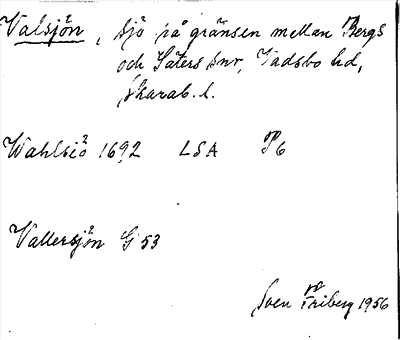 Valsjön, sjö på gränsen mellan Bergs
och Säters snr, Vadsbo hd,
Skarab. l.
Wahlsiö 1692 LSA P6
Vallersjön G 53
Sven Friberg 1956